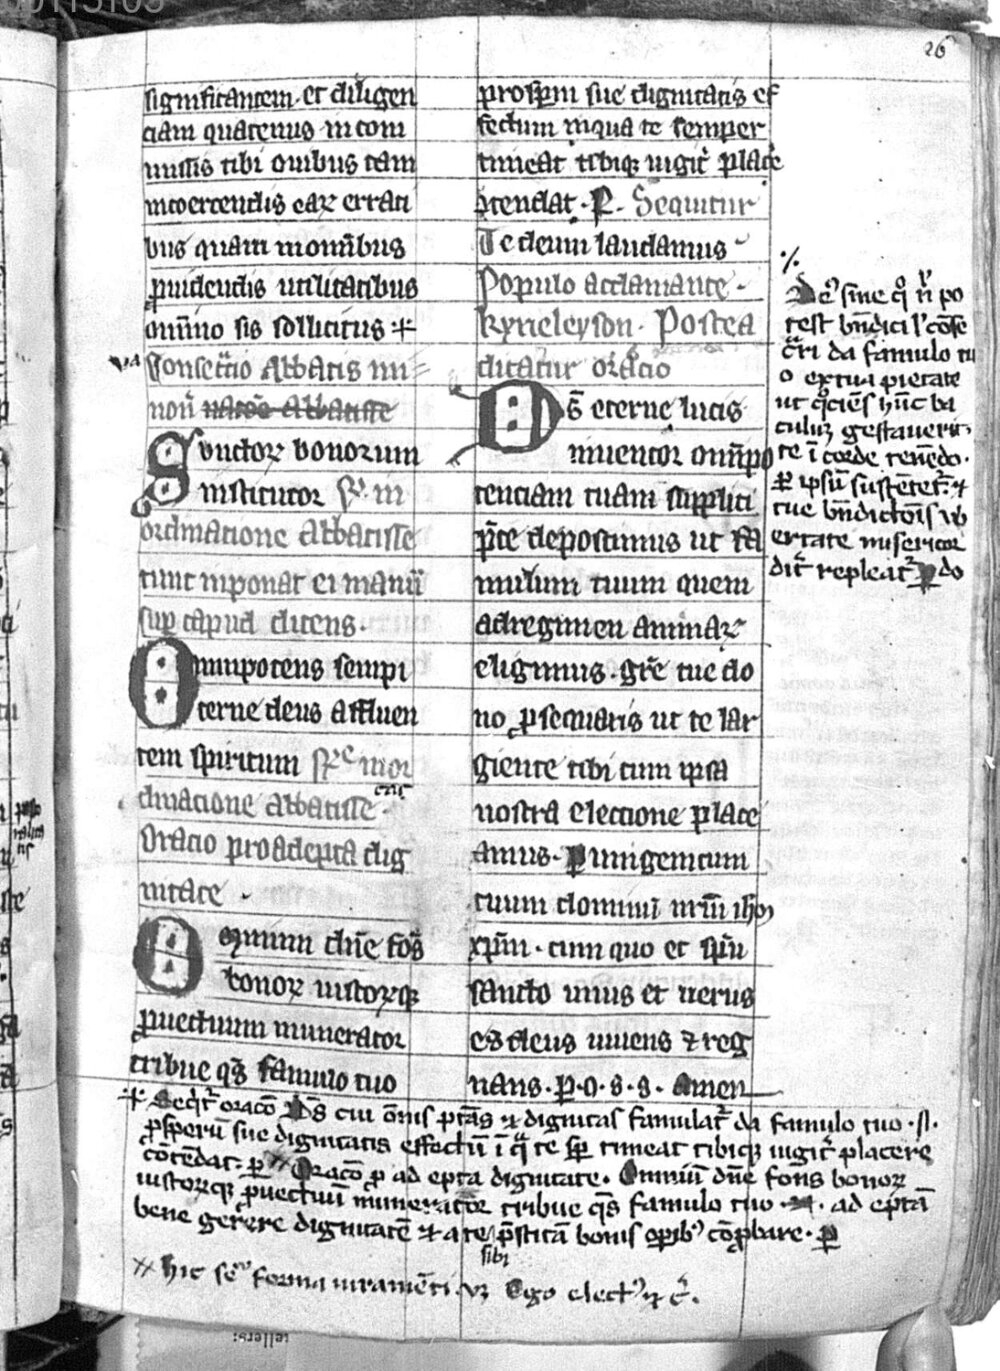 26
significantem et diligen
ciam quatenus in com
missis tibi ouibus tam
incoercendis eaꝝ errati
bus quam in omnibus
ꝓuidendis utilitatibus
omnino sis sollicitus +
Consecrᷓcio Abbatis
nou
ructoꝝ bonorum
institutor
ordinatione Abbatisse
tunc inponat ei manū
suꝑ capud dicens.
Omnipotens sempi
terne deus affluen
tem spiritum
dinacione abbatisse
Oracio pro adepta dig
nitate.
Omnium dn̄e fons
bonoꝝ iustoꝝqꝫ
ꝓuectuum munerator
tribue q̄s famulo tuo
prosꝑm sue dignitatis ef
fectum in qua te semper
timeat tibiqꝫ iugit̉ plac̉e
ꝯtendat. P. Sequitur
Te deum laudamus
Populo acclamante.
kyrieleyson. Postea
dicatur orācio
Ds̄ eterne lucis
inuentor omnīpo
tenciam tuam supplici
p̄ce deposcimus ut fa
mulum tuum quem
ad regimen animaꝝ
eligimus. grē tue do
no ꝓsequaris ut te lar
giente tibi cum ipsa
nostra eleccione place
amus. P unigenitum
tuum dominū nr̄m ih̄m
xp̄m. cum quo et sp̄u
sancto unus et uerus
es deus uiuens ⁊ reg
nans. P. o. s. s. Amen
De᷒ sine qͦ n̄ po
test bn̄dici
da famulo tu
o ex tua pietate
ut qͦciēs hūc ba
culuꝫ gestauerit
te ī corde tenēdo.
⁊ ipsū sustētet̉. ⁊
tue bn̄dictōis ub
ertate misericor
dit̉ repleat̉ ꝑ do
+ Seqit̉ oracō Ds̄ cui ōnis ptās ⁊ dignitas famulat̉ da famulo tuo .N.
ꝓsperū sue dignitatis effectū ī qͣ te sꝑ timeat tibiqꝫ iugit̉ placere
cōtēdat. ꝑ Oracō ꝓ adepta dignitate. Omniū dn̄e fons bonoꝝ
iustoꝝqꝫ ꝓuectuū munerator tribue q̄s famulo tuo .N. adeptā
bene gerere dignitatē ⁊ a te sibi p̄stitā bonis oꝑib᷒ cōꝓbare. ꝑ
hic se᷒ forma iuramēti uꝫ Ego elect᷒ ⁊ c̉.